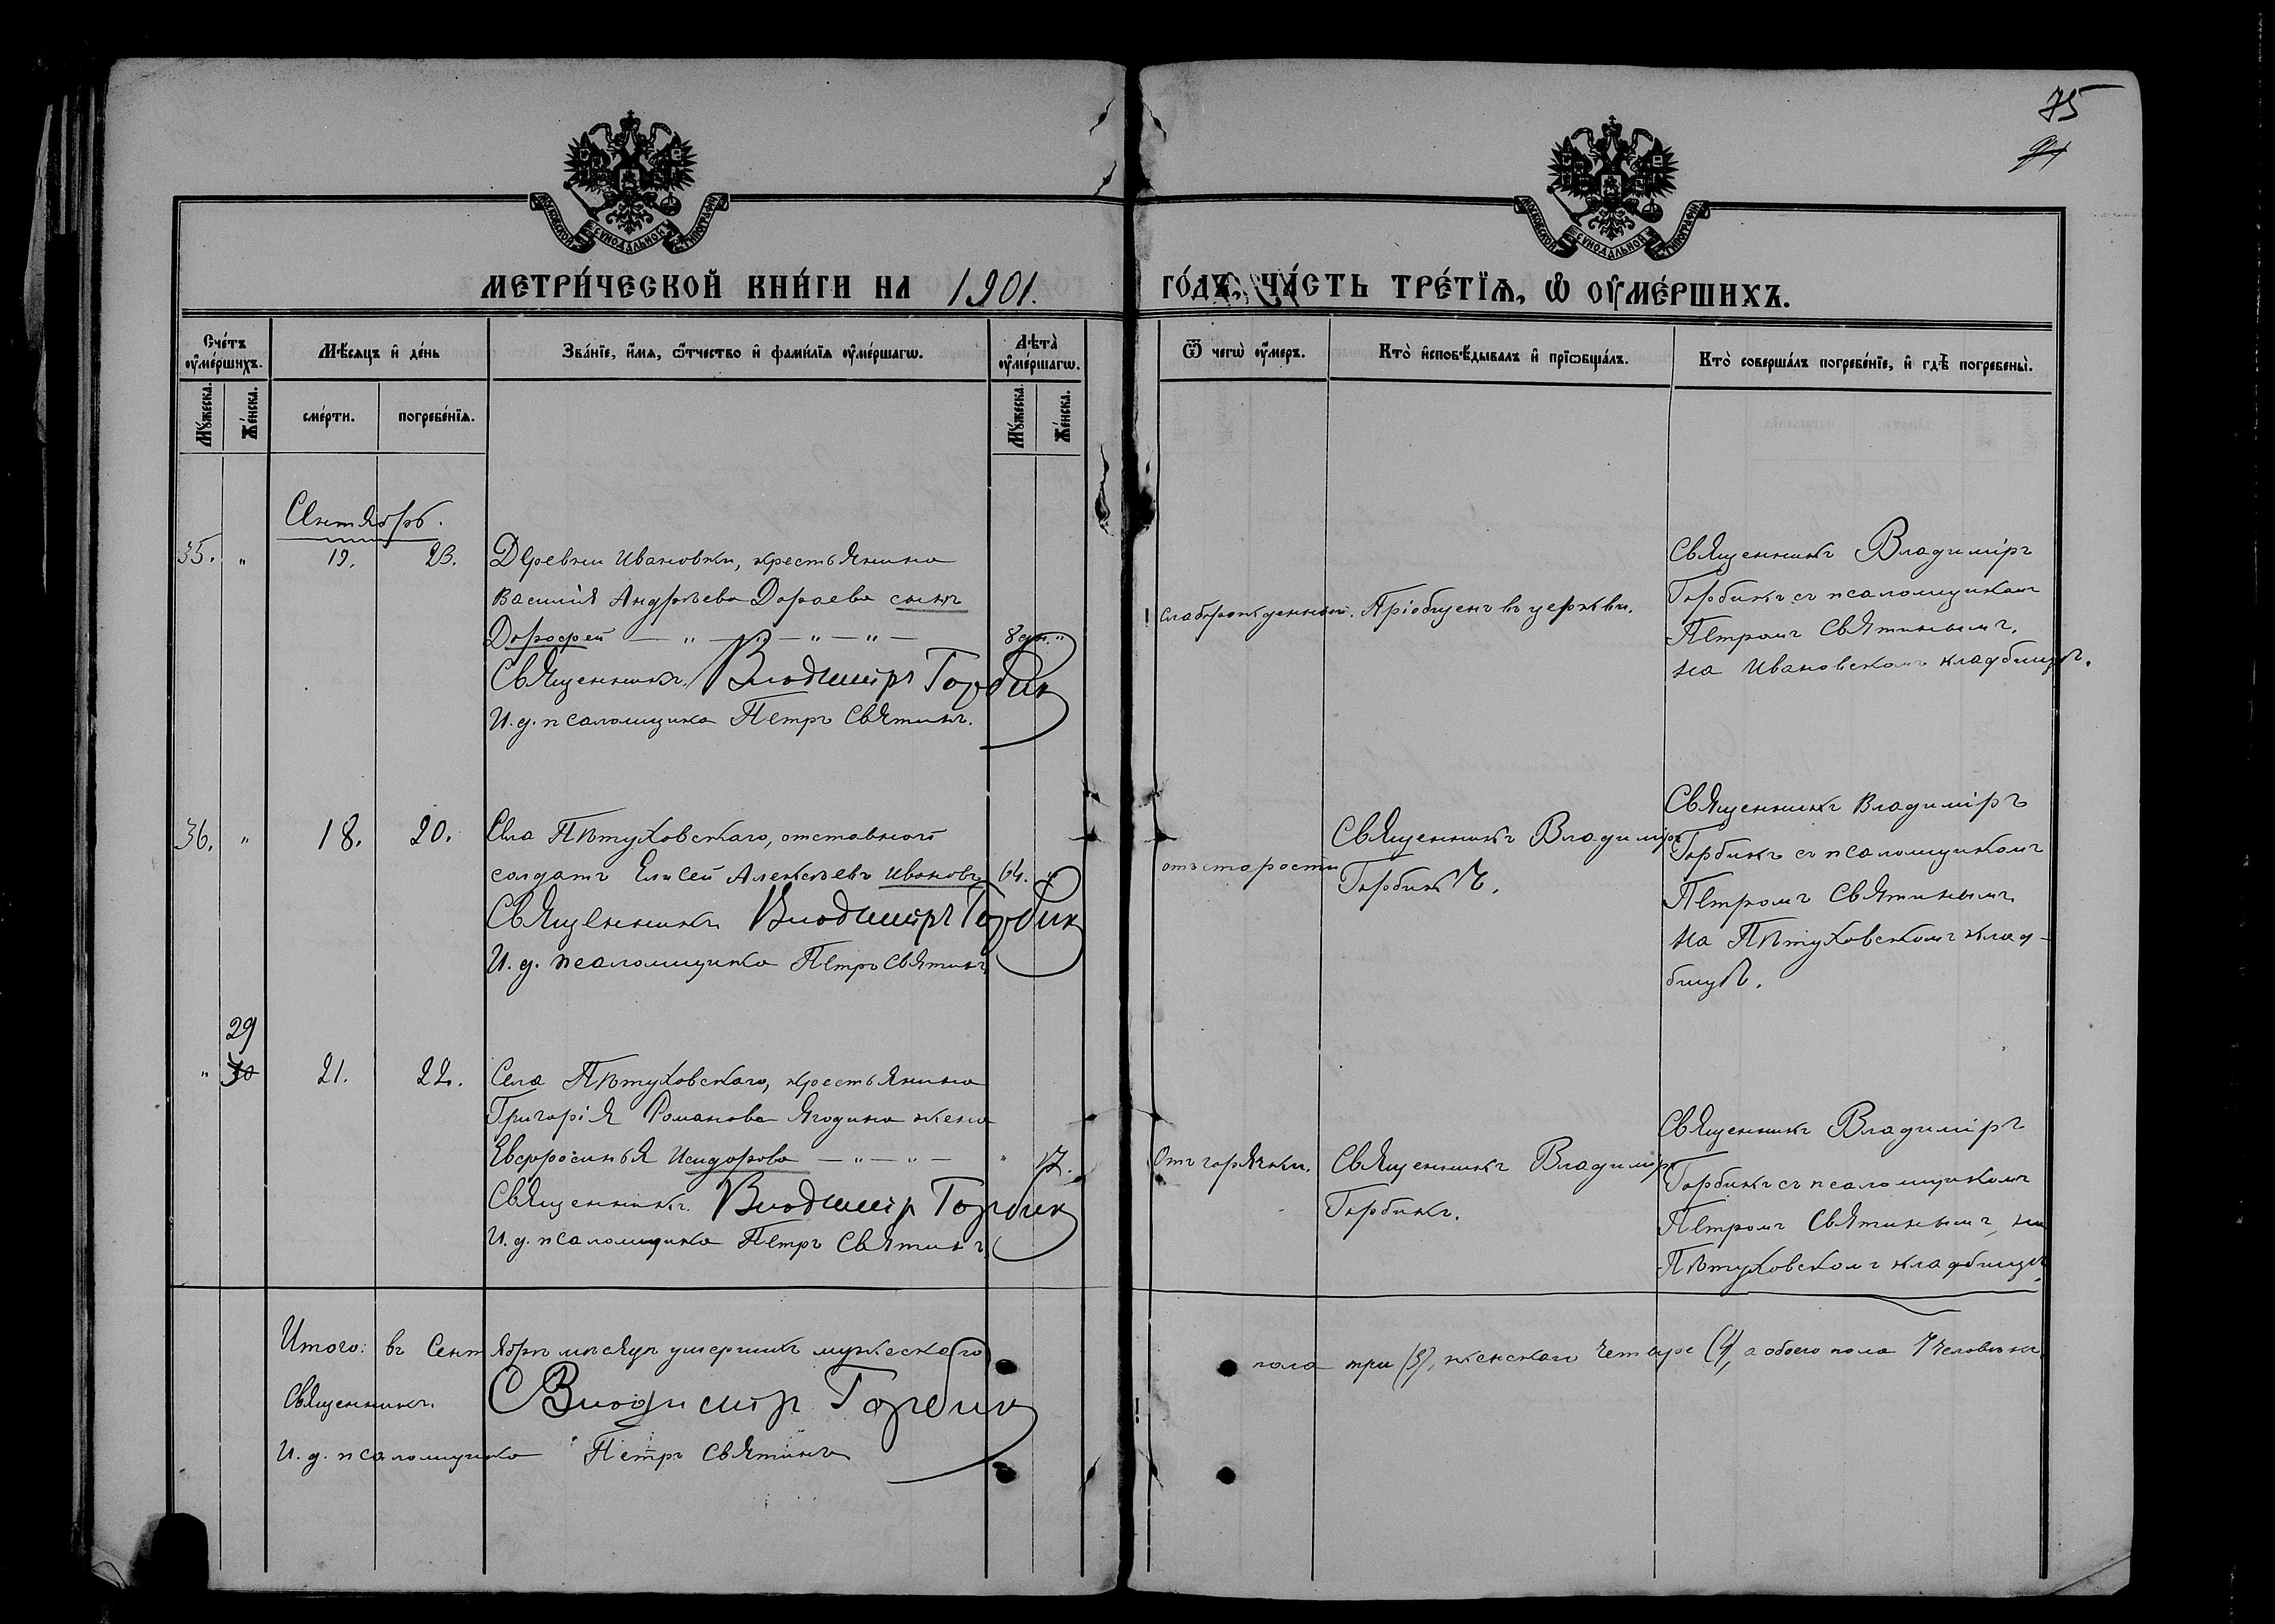 75
91
МОСКОВСКОЙ СѴНОДАЛЬНОЙ ТИПОГРАФІИ
МОСКОВСКОЙ СѴНОДАЛЬНОЙ ТИПОГРАФІИ
МЕТРИ́ЧЕСКОЙ КНИ́ГИ НА 1901.
ГО́ДЪ, ЧА́СТЬ ТРЕ́ТЇѦ, Ѡ҆ ОУ҆МЕ́РШИХЪ.
Сче́тъ оу҆ме́ршихъ.
Мѣ́сѧцъ и҆ де́нь
Зва́нїе, и҆́мѧ, ѻ҆́тчество и҆ фами́лїѧ оу҆ме́ршагѡ.
Лѣта̀ оу҆ме́ршагѡ.
Мꙋ́жеска.
Же́нска.
сме́рти.
погребе́нїѧ.
Мꙋ́жеска.
Же́нска.
Ѿ чегѡ̀ оу҆́меръ.
Кто̀ и҆сповѣ́дывалъ и҆ прїѡбща́лъ.
Кто̀ соверша́лъ погребе́нїе, и҆ гдѣ̀ погребены̀.
Сентябрь.
35. " 19. 23. Деревни Ивановки, крестьянина
Василія Андрѣева Дораева сынъ
Дорофей — " — " — " — " — 8 дн. "
Священникъ Владиміръ Горбик
И. д. псаломщика Петръ Святинъ.
слаборожденный.
Пріобщенъ въ церкви.
Священникъ Владиміръ
Горбикъ съ псаломщикомъ
Петромъ Святинымъ,
на Ивановскомъ кладбищѣ.
36. " 18. 20. Села Пѣтуховскаго, отставной
солдатъ Елисей Алексѣевъ Ивановъ 64. "
Священникъ Владиміръ Горбик
И. д. псаломщика Петръ Святинъ
отъ старости
Священникъ Владиміръ
Горбикъ.
Священникъ Владиміръ
Горбикъ съ псаломщикомъ
Петромъ Святинымъ
на Пѣтуховскомъ клад-
бищѣ.
29
" 30 21. 22. Села Пѣтуховскаго, крестьянина
Григорія Романова Ягодина жена
Евфросинья Исидорова — " — " — "
Священникъ. Владимір Горбик
И. д. псаломщика Петръ Святинъ
Отъ горячки.
Священникъ Владиміръ
Горбикъ.
Священникъ Владиміръ
Горбикъ съ псаломщикомъ
Петромъ Святинымъ, на
Пѣтуховскомъ кладбищѣ.
Итого: въ Сентябрѣ мѣсяцѣ умершихъ мужескаго
пола три (3), женскаго четыре (4), а обоего пола 7 человѣкъ.
Священникъ. Владимір Горбик
И. д. псаломщика Петръ Святинъ